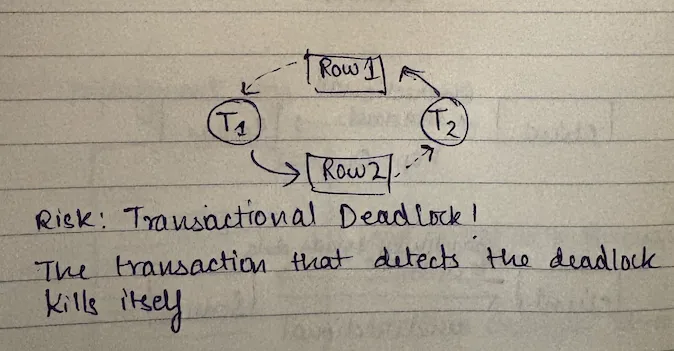 Row 1
T1
T2
Row 2
Risk: Transactional Deadlock!
The transaction that detects the deadlock
kills itself